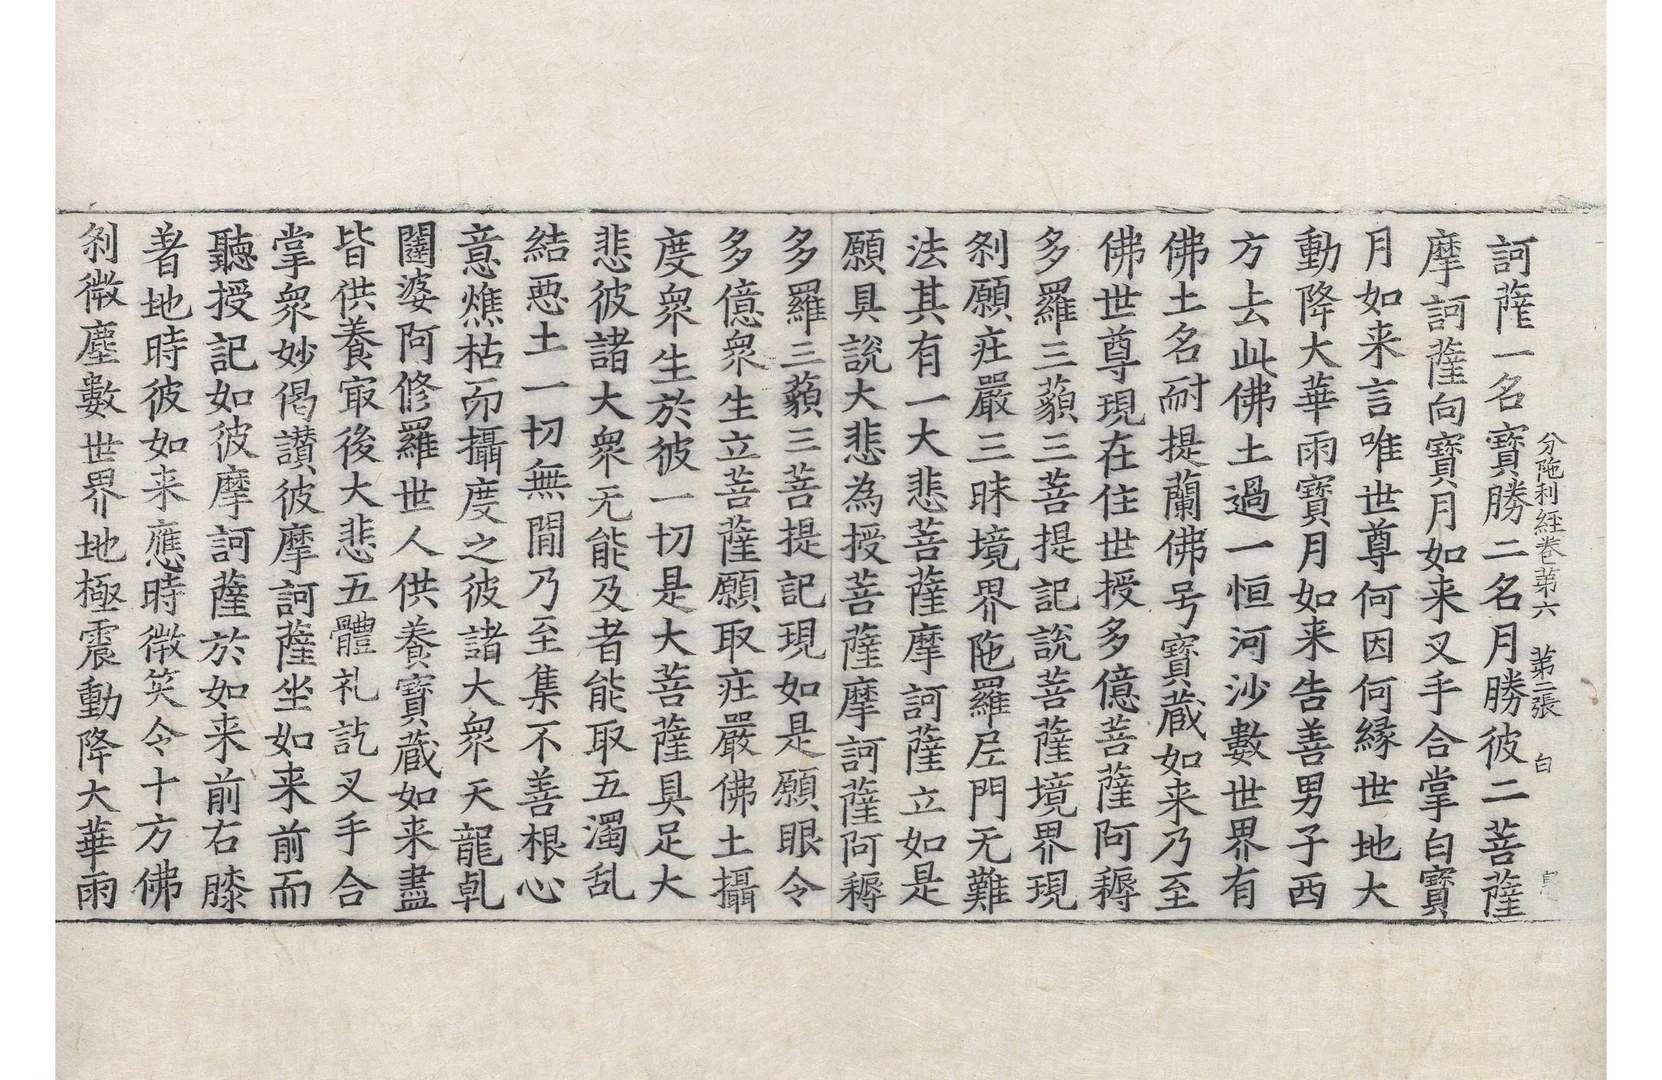 分陁利經卷苐六　苐二張　白
訶薩一名寶勝二名月勝彼二菩薩
摩訶薩向寶月如来叉手合掌白寶
月如来言唯世尊何因何縁世地大
動降大華雨寶月如来告善男子西
方去此佛土過一恒河沙數世界有
佛土名耐提蘭佛号寶蔵如来乃至
佛世尊現在住世授多億菩薩阿耨
多羅三藐三菩提記說菩薩境界現
刹願庄嚴三昧境界陁羅尼門无難
法其有一大悲菩薩摩訶薩立如是
願具說大悲為授菩薩摩訶薩阿耨
多羅三藐三菩提記現如是願眼令
多億衆生立菩薩願取庄嚴佛土攝
度衆生於彼一切是大菩薩具足大
悲彼諸大衆无能及者能取五濁乱
結惡土一切無間乃至集不善根心
意燋枯而攝度之彼諸大衆天龍乹
闥婆阿修羅世人供養寶蔵如来盡
皆供養㝡後大悲五體礼訖叉手合
掌衆妙偈讃彼摩訶薩坐如来前而
聽授記如彼摩訶薩於如来前右膝
著地時彼如来應時微笑令十方佛
刹微塵數世界地極震動降大華雨